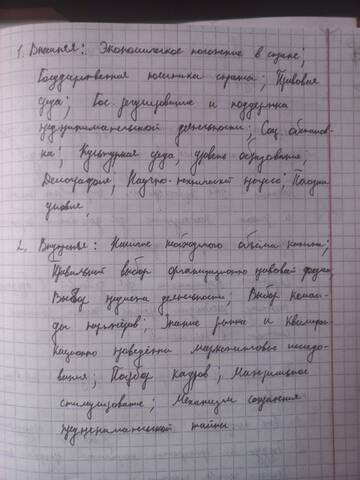 1. Внешняя: Экономическое положение в стране;
Государственная политика страны; Правовая
среда; Гос. регулирование и поддержка
предпринимательской деятельности; Соц. обстанов-
ка; Культурная среда, уровень образования;
Демография; Научно-технический прогресс; Погодн
условия;
2. Внутренняя: Наличие необходимого объёма капитала;
Правильный выбор организационно правовой формы;
Выбор предмета деятельности; Выбор коман-
ды партнёров; Знание рынка и Квалифи-
кационно проведённы маркетинговые исследо-
вания; Подбор кадров; Материальное
стимулирование; Механизм сохранения
предпринимательской тайны